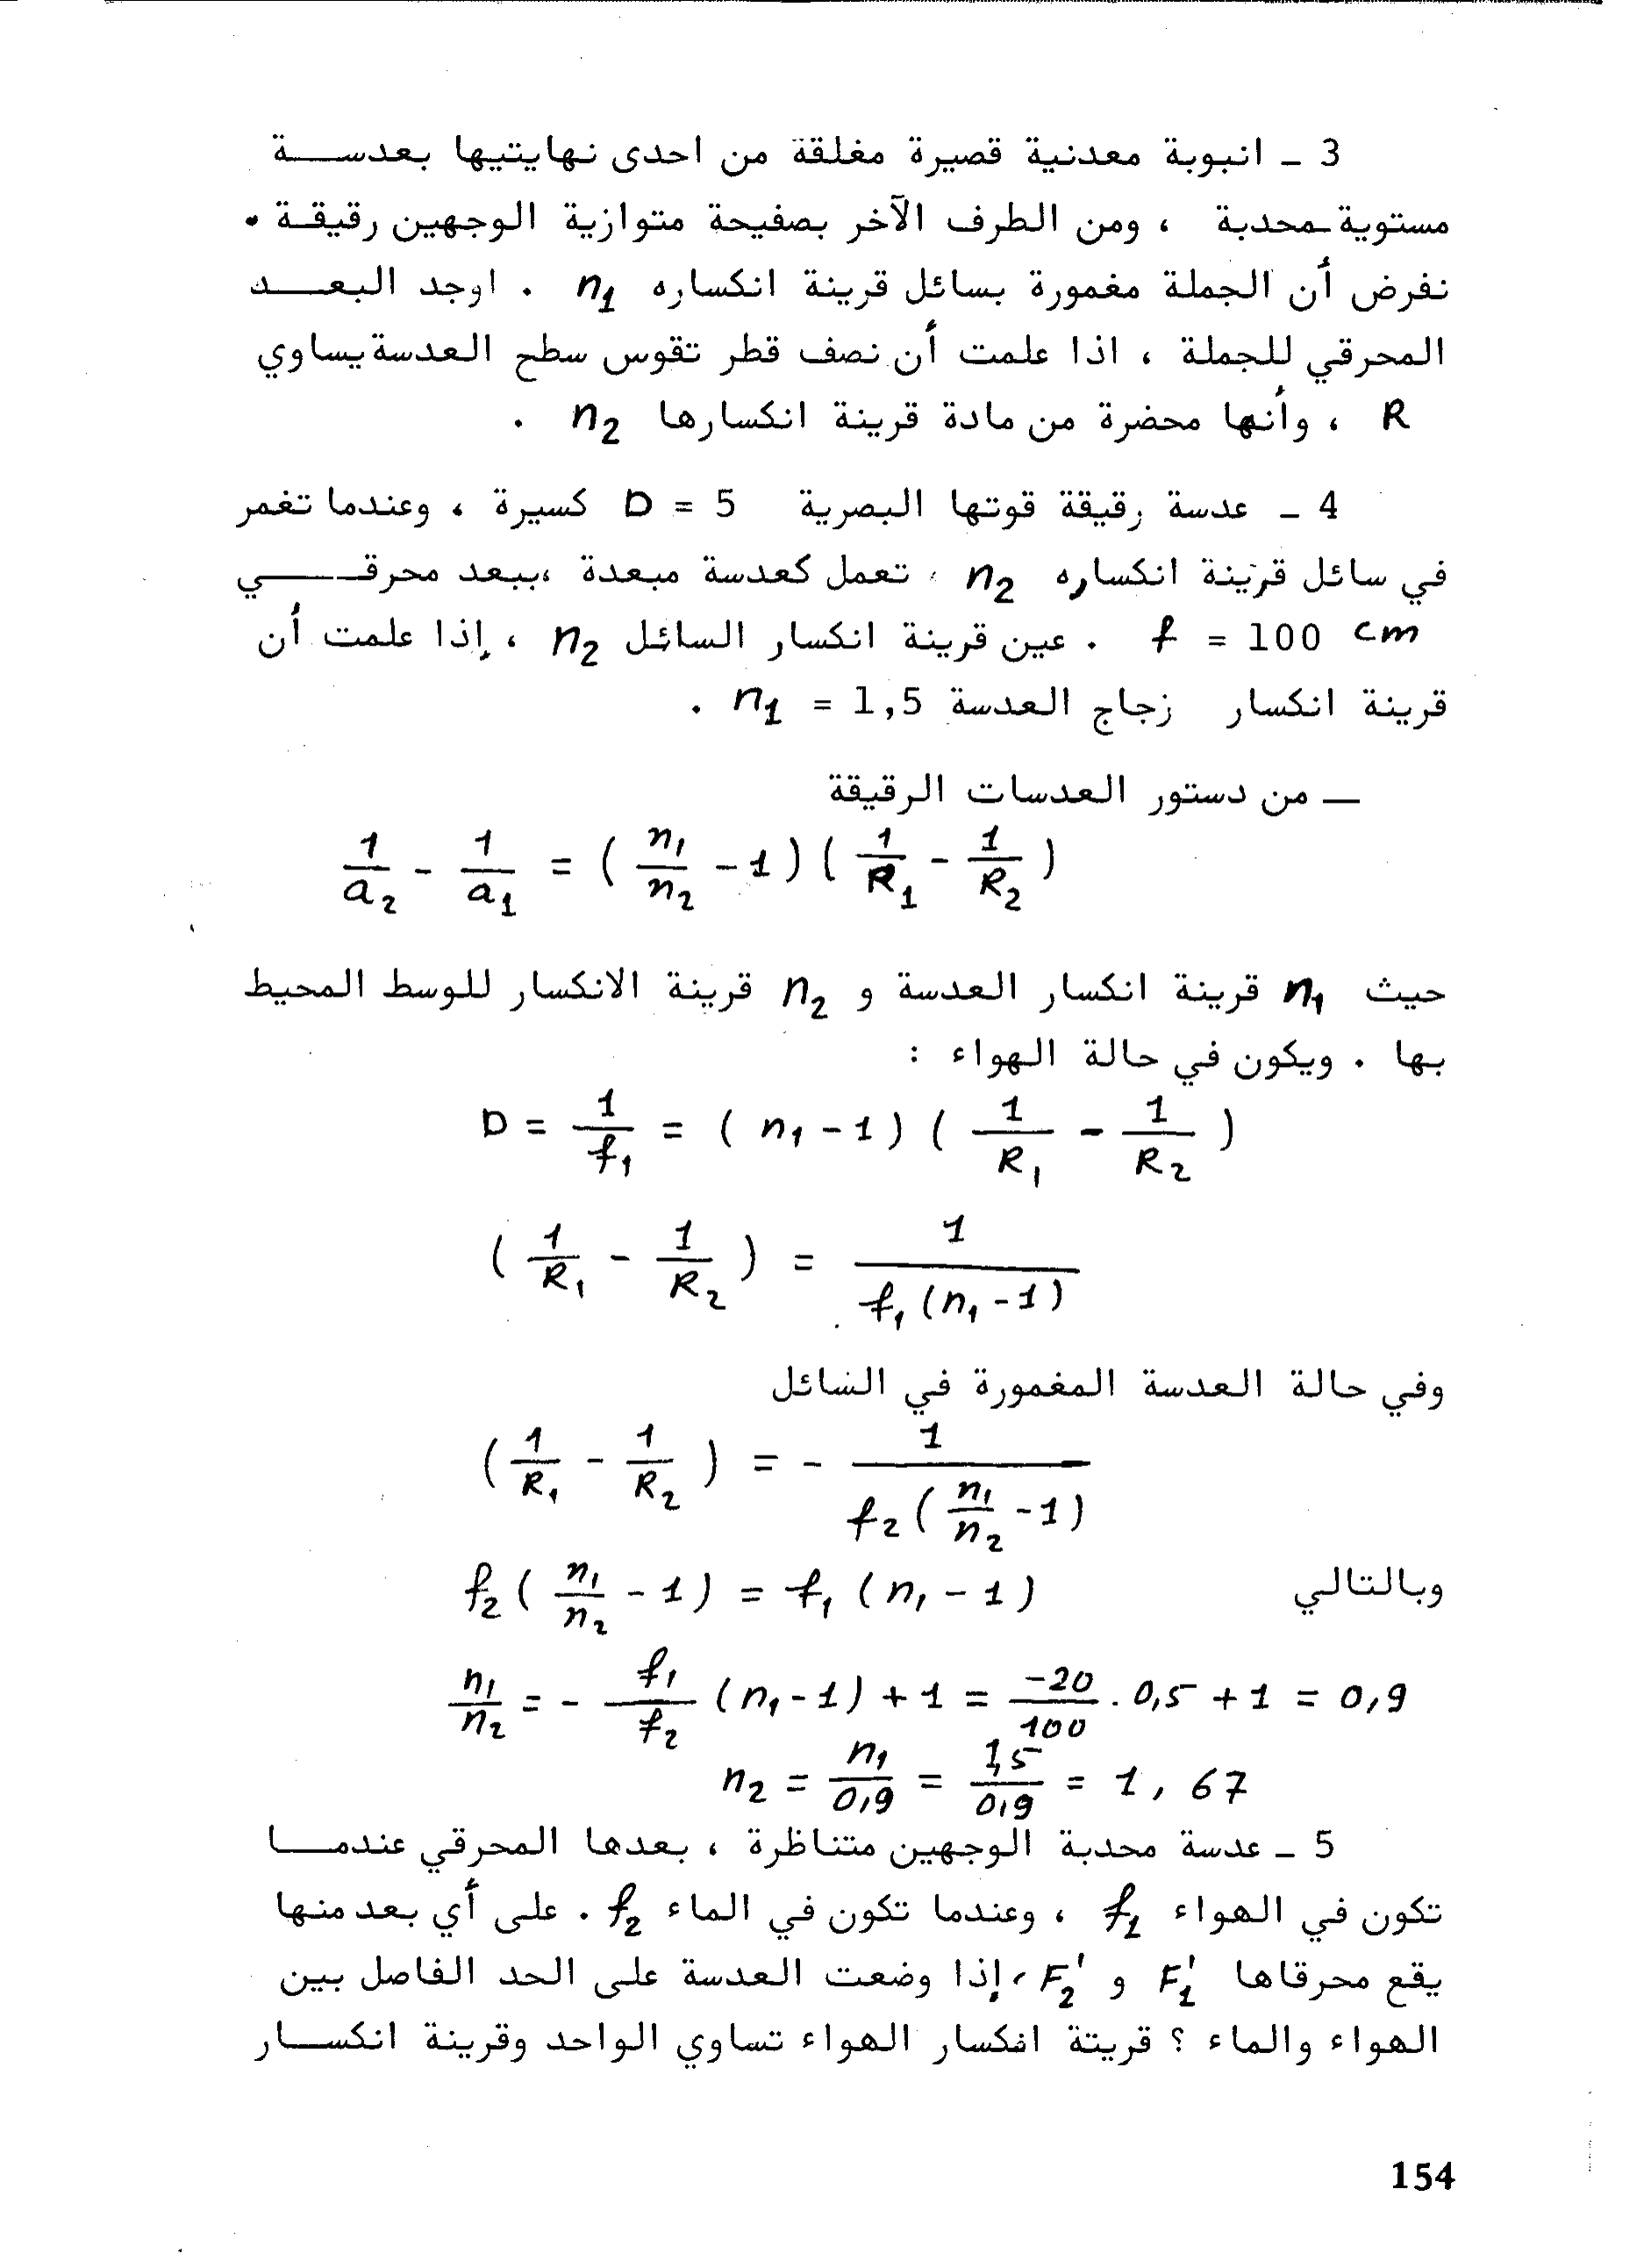 3 ـ انبوبة معدنية قصيرة مغلقة من احدى نهايتيها بعدسة
مستوية ـ محدبة ، ومن الطرف الآخر بصفيحة متوازية الوجهين رقيقة .
نفرض أن الجملة مغمورة بسائل قرينة انكساره n₁ . اوجد البعد
المحرقي للجملة ، اذا علمت أن نصف قطر تقوس سطح العدسة يساوي
R ، وأنها محضرة من مادة قرينة انكسارها n₂ .
4 ـ عدسة رقيقة قوتها البصرية D = 5 كسيرة ، وعندما تغمر
في سائل قرينة انكساره n₂ ، تعمل كعدسة مبعدة ، ببعد محرقي
f = 100 cm . عين قرينة انكسار السائل n₂ ، إذا علمت أن
قرينة انكسار زجاج العدسة n₁ = 1,5 .
— من دستور العدسات الرقيقة
1/a₂ - 1/a₁ = ( n₁/n₂ - 1 ) ( 1/R₁ - 1/R₂ )
حيث n₁ قرينة انكسار العدسة و n₂ قرينة الانكسار للوسط المحيط
بها . ويكون في حالة الهواء :
D = 1/f₁ = ( n₁ - 1 ) ( 1/R₁ - 1/R₂ )
( 1/R₁ - 1/R₂ ) = 1/f₁(n₁ - 1)
وفي حالة العدسة المغمورة في السائل
( 1/R₁ - 1/R₂ ) = - 1/f₂( n₁/n₂ - 1)
وبالتالي f₂ ( n₁/n₂ - 1 ) = f₁ ( n₁ - 1 )
n₁/n₂ = - f₁/f₂ ( n₁ - 1 ) + 1 = -20/100 . 0,5 + 1 = 0,9
n₂ = n₁/0,9 = 1,5/0,9 = 1, 67
5 ـ عدسة محدبة الوجهين متناظرة ، بعدها المحرقي عندما
تكون في الهواء f₁ ، وعندما تكون في الماء f₂ . على أي بعد منها
يقع محرقاها F₁' و F₂' ، إذا وضعت العدسة على الحد الفاصل بين
الهواء والماء ؟ قريتة انكسار الهواء تساوي الواحد وقرينة انكسار
154